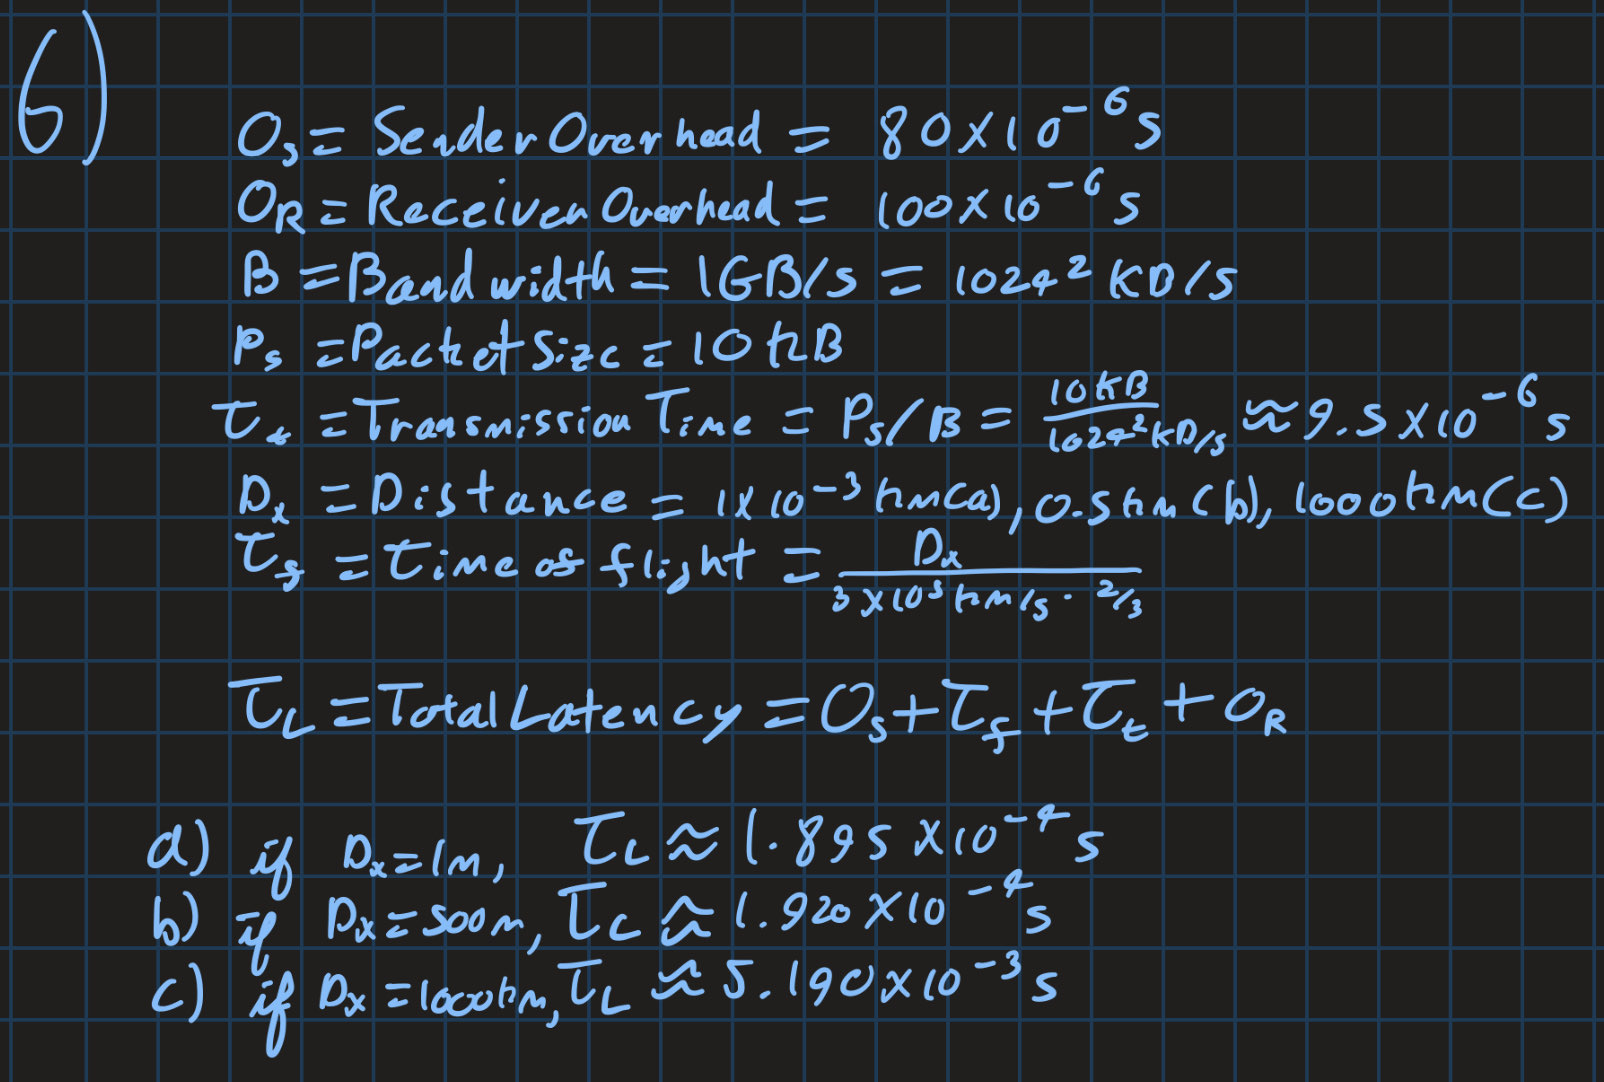 6)
O_s = Sender Overhead = 80×10^-6 s
O_R = Receiver Overhead = 100×10^-6 s
B = Bandwidth = 1GB/s = 1024^2 KB/s
P_s = Packet Size = 10 kB
τ_t = Transmission Time = P_s/B = 10KB / 1024^2 KB/s ≈ 9.5×10^-6 s
D_x = Distance = 1×10^-3 km (a), 0.5 km (b), 1000 km (c)
τ_f = time of flight = D_x / 3×10^5 km/s · 2/3
τ_L = Total Latency = O_s + τ_f + τ_t + O_R
a) if D_x = 1m, τ_L ≈ 1.895×10^-4 s
b) if D_x = 500m, τ_L ≈ 1.920×10^-4 s
c) if D_x = 1000km, τ_L ≈ 5.190×10^-3 s